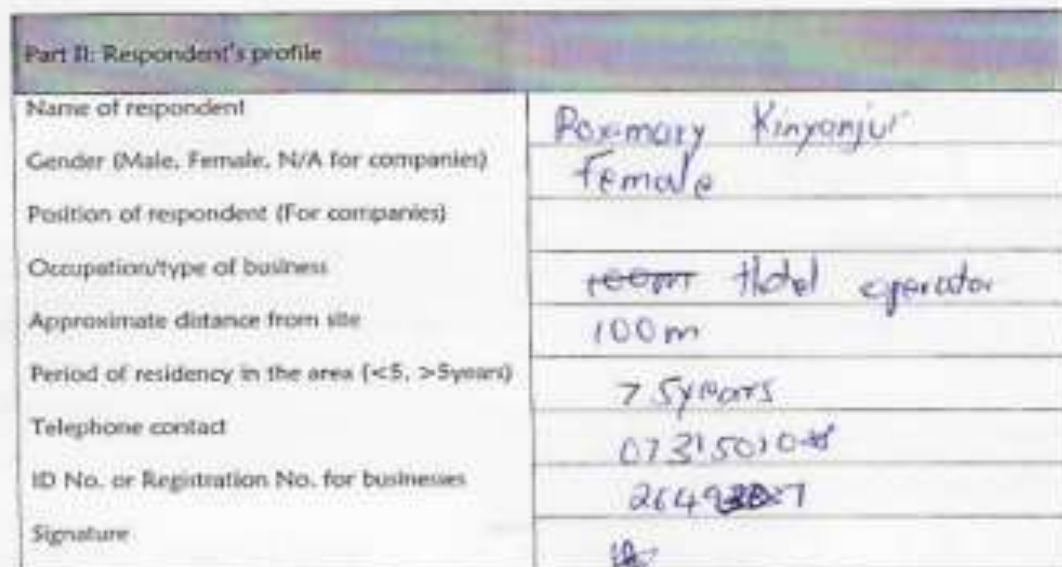 Part II: Respondent's profile
Name of respondent
Roxmary Kinyanjui
Gender (Male, Female, N/A for companies)
Female
Position of respondent (For companies)
Occupation/type of business
100m Hotel operator
Approximate distance from site
100m
Period of residency in the area (<5, >5years)
> 5years
Telephone contact
ID No. or Registration No. for businesses
Signature